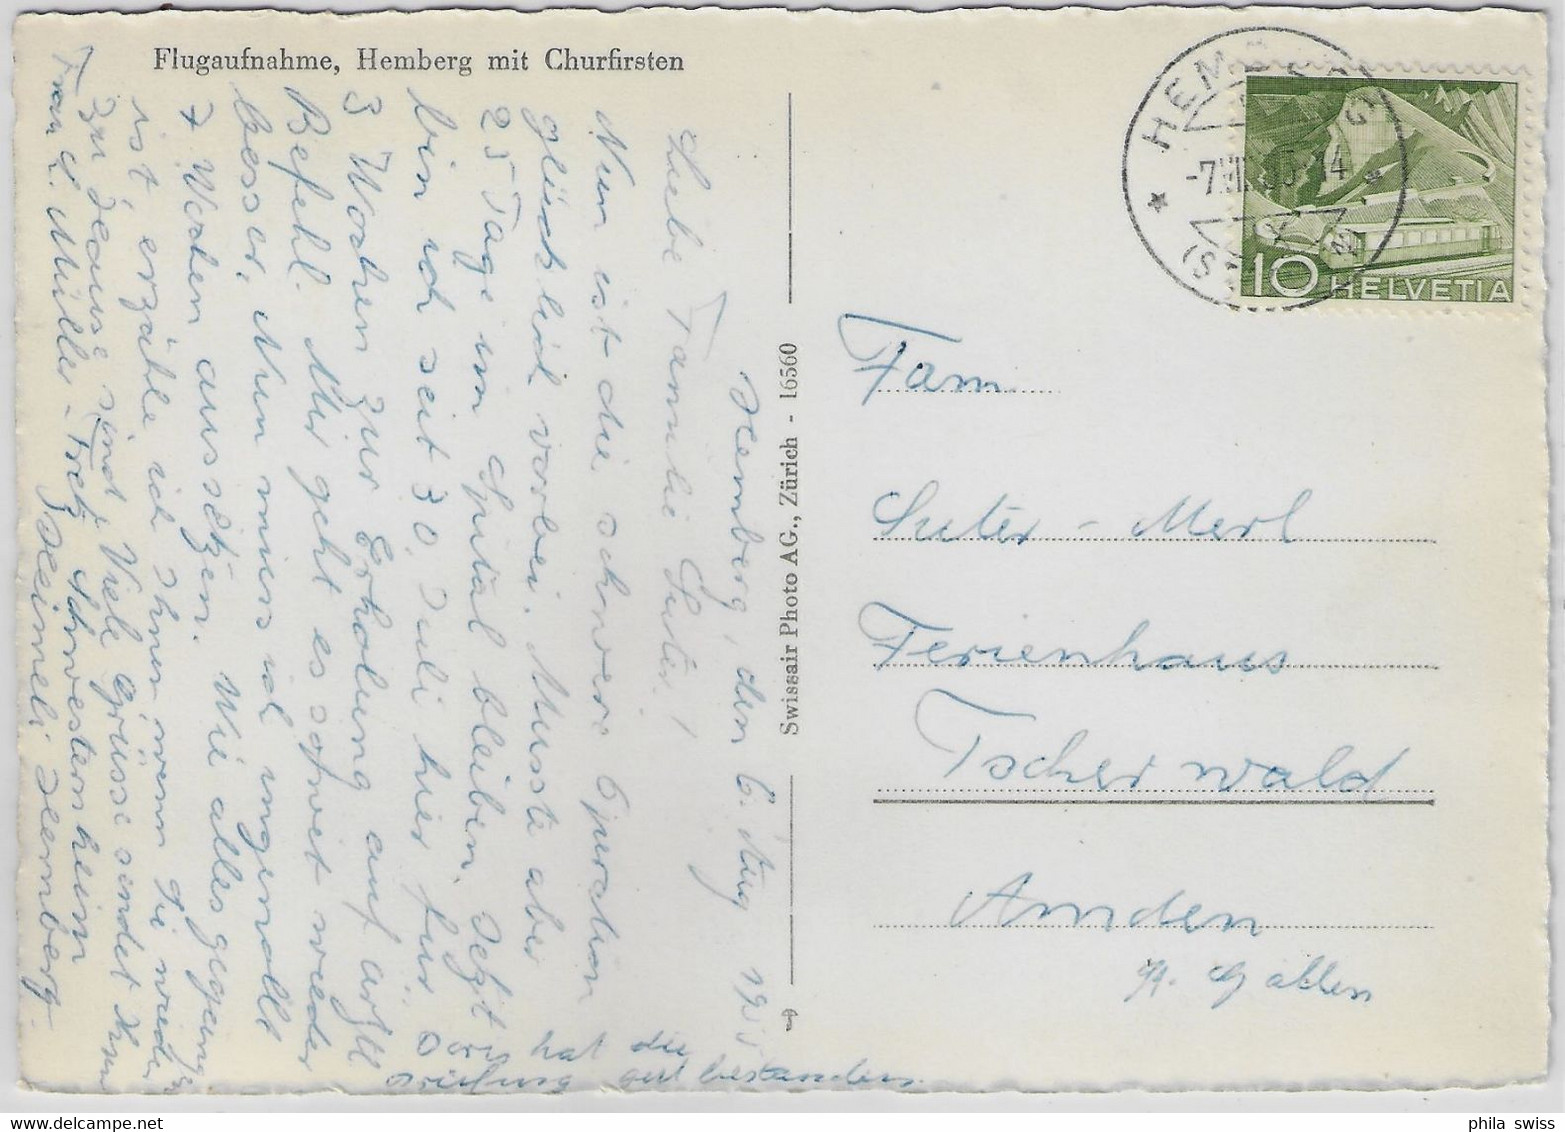 Flugaufnahme, Hemberg mit Churfirsten
Hemberg, den 6. Aug 1955
Liebe Familie Suter!
Nun ist die schwere Operation
glücklich vorbei. Musste aber
25 Tage im Spital bleiben. Jetzt
bin ich seit 30. Juli hier für
3 Wochen zur Erholung auf ärztl
Befehl. Mir geht es soweit wieder
besser. Nun muss ich ungewollt
7 Wochen aussetzen. Wie alles gegangen
ist, erzähle ich Ihnen wenn Sie wieder
zu Hause sind. Viele Grüsse sendet Ihnen
Frau L. Müller - Frek Schwesternheim
Heimeli Hemberg.
Doris hat die
Prüfung gut bestanden.
Swissair Photo AG., Zürich - 16560
HEMBERG
-7.VIII. 14
10 HELVETIA
Fam
Suter - Merl
Ferienhaus
Tscherwald
Amden
St. Gallen
phila swiss